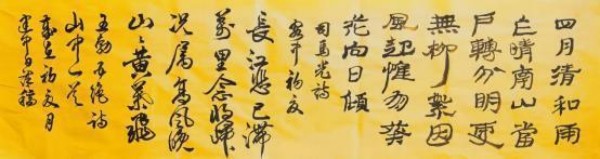 四月清和雨
乍晴南山當
戶轉分明更
無柳絮因
風起惟有葵
花向日傾
司馬光詩
客中初夏
長江悲已滯
萬里念將歸
况属高風晚
山山黃葉飛
王勃五绝詩
山中一首
初夏月